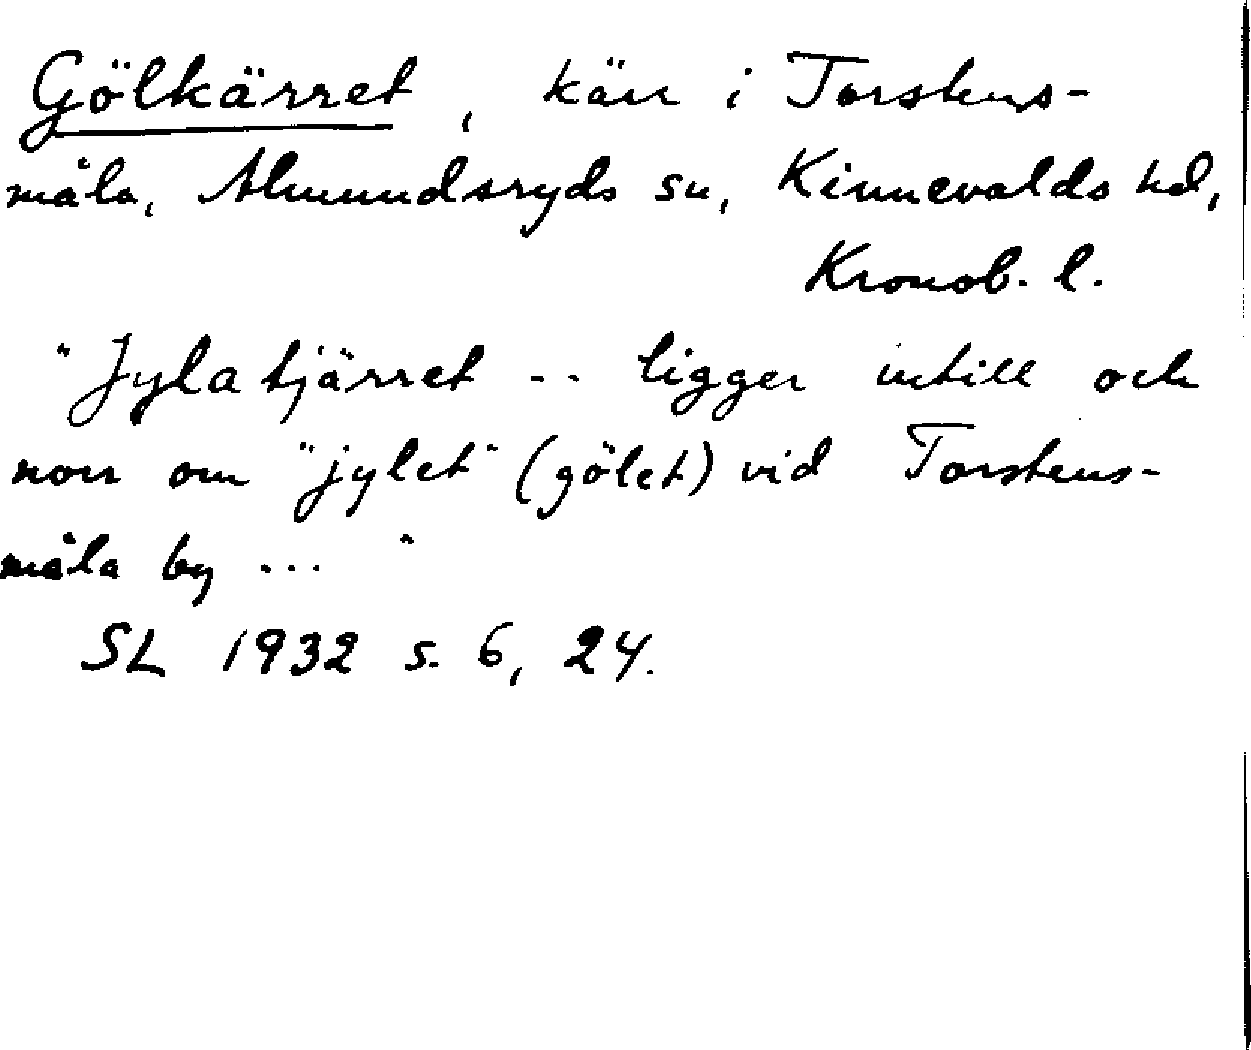 Gölkärret, kärr i Torstens-
måla, Almundsryds sn, Kinnevalds hd,
Kronob. l.
"Jylatjärret -- ligger intill och
norr om "jylet" (gölet) vid Torstens-
måla by ... "
SL 1932 s. 6, 24.